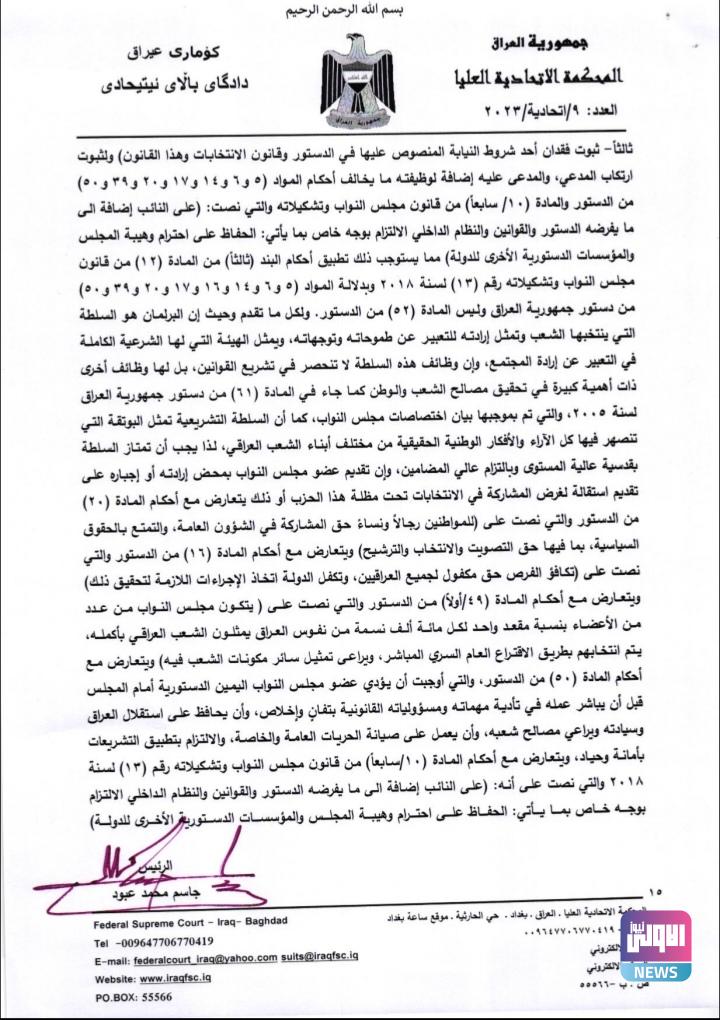 بسم الله الرحمن الرحيم
جمهورية العراق
المحكمة الاتحادية العليا
العدد: ٩/اتحادية/٢٠٢٣
كۆماری عیراق
دادگای باڵای ئیتیحادی
جمهورية العراق
ثالثاً- ثبوت فقدان أحد شروط النيابة المنصوص عليها في الدستور وقانون الانتخابات وهذا القانون) ولثبوت
ارتكاب المدعي، والمدعى عليه إضافة لوظيفته ما يخالف أحكام المواد (٥ و٦ و١٤ و١٧ و٢٠ و٣٩ و٥٠)
من الدستور والمادة (١٠/ سابعاً) من قانون مجلس النواب وتشكيلاته والتي نصت: (على النائب إضافة الى
ما يفرضه الدستور والقوانين والنظام الداخلي الالتزام بوجه خاص بما يأتي: الحفاظ على احترام وهيبة المجلس
والمؤسسات الدستورية الأخرى للدولة) مما يستوجب ذلك تطبيق أحكام البند (ثالثاً) من المادة (١٢) من قانون
مجلس النواب وتشكيلاته رقم (١٣) لسنة ٢٠١٨ وبدلالة المواد (٥ و٦ و١٤ و١٦ و١٧ و٢٠ و٣٩ و٥٠)
من دستور جمهورية العراق وليس المادة (٥٢) من الدستور. ولكل ما تقدم وحيث إن البرلمان هو السلطة
التي ينتخبها الشعب وتمثل إرادته للتعبير عن طموحاته وتوجهاته، ويمثل الهيئة التي لها الشرعية الكاملة
في التعبير عن إرادة المجتمع، وإن وظائف هذه السلطة لا تنحصر في تشريع القوانين، بل لها وظائف أخرى
ذات أهمية كبيرة في تحقيق مصالح الشعب والوطن كما جاء في المادة (٦١) من دستور جمهورية العراق
لسنة ٢٠٠٥، والتي تم بموجبها بيان اختصاصات مجلس النواب، كما أن السلطة التشريعية تمثل البوتقة التي
تنصهر فيها كل الآراء والأفكار الوطنية الحقيقية من مختلف أبناء الشعب العراقي، لذا يجب أن تمتاز السلطة
بقدسية عالية المستوى وبالتزام عالي المضامين، وإن تقديم عضو مجلس النواب بمحض إرادته أو إجباره على
تقديم استقالة لغرض المشاركة في الانتخابات تحت مظلة هذا الحزب أو ذلك يتعارض مع أحكام المادة (٢٠)
من الدستور والتي نصت على (للمواطنين رجالاً ونساءً حق المشاركة في الشؤون العامة، والتمتع بالحقوق
السياسية، بما فيها حق التصويت والانتخاب والترشيح) ويتعارض مع أحكام المادة (١٦) من الدستور والتي
نصت على (تكافؤ الفرص حق مكفول لجميع العراقيين، وتكفل الدولة اتخاذ الإجراءات اللازمة لتحقيق ذلك)
ويتعارض مع أحكام المادة (٤٩/أولاً) من الدستور والتي نصت على ( يتكون مجلس النواب من عدد
من الأعضاء بنسبة مقعد واحد لكل مائة ألف نسمة من نفوس العراق يمثلون الشعب العراقي بأكمله،
يتم انتخابهم بطريق الاقتراع العام السري المباشر، ويراعى تمثيل سائر مكونات الشعب فيه) ويتعارض مع
أحكام المادة (٥٠) من الدستور، والتي أوجبت أن يؤدي عضو مجلس النواب اليمين الدستورية أمام المجلس
قبل أن يباشر عمله في تأدية مهماته ومسؤولياته القانونية بتفانٍ وإخلاص، وأن يحافظ على استقلال العراق
وسيادته ويراعي مصالح شعبه، وأن يعمل على صيانة الحريات العامة والخاصة، والالتزام بتطبيق التشريعات
بأمانة وحياد، ويتعارض مع أحكام المادة (١٠/سابعاً) من قانون مجلس النواب وتشكيلاته رقم (١٣) لسنة
٢٠١٨ والتي نصت على أنه: (على النائب إضافة الى ما يفرضه الدستور والقوانين والنظام الداخلي الالتزام
بوجه خاص بما يأتي: الحفاظ على احترام وهيبة المجلس والمؤسسات الدستورية الأخرى للدولة)
الرئيس
جاسم محمد عبود
١٥
المحكمة الاتحادية العليا . العراق . بغداد . حي الحارثية . موقع ساعة بغداد
٠٠٩٦٤٧٧٠٦٧٧٠٤١٩
الالكتروني
الالكتروني
ص . ب – ٥٥٥٦٦
Federal Supreme Court – Iraq- Baghdad
Tel -009647706770419
E-mail: federalcourt_iraq@yahoo.com suits@iraqfsc.iq
Website: www.iraqfsc.iq
PO.BOX: 55566
الاولى نيوز
NEWS